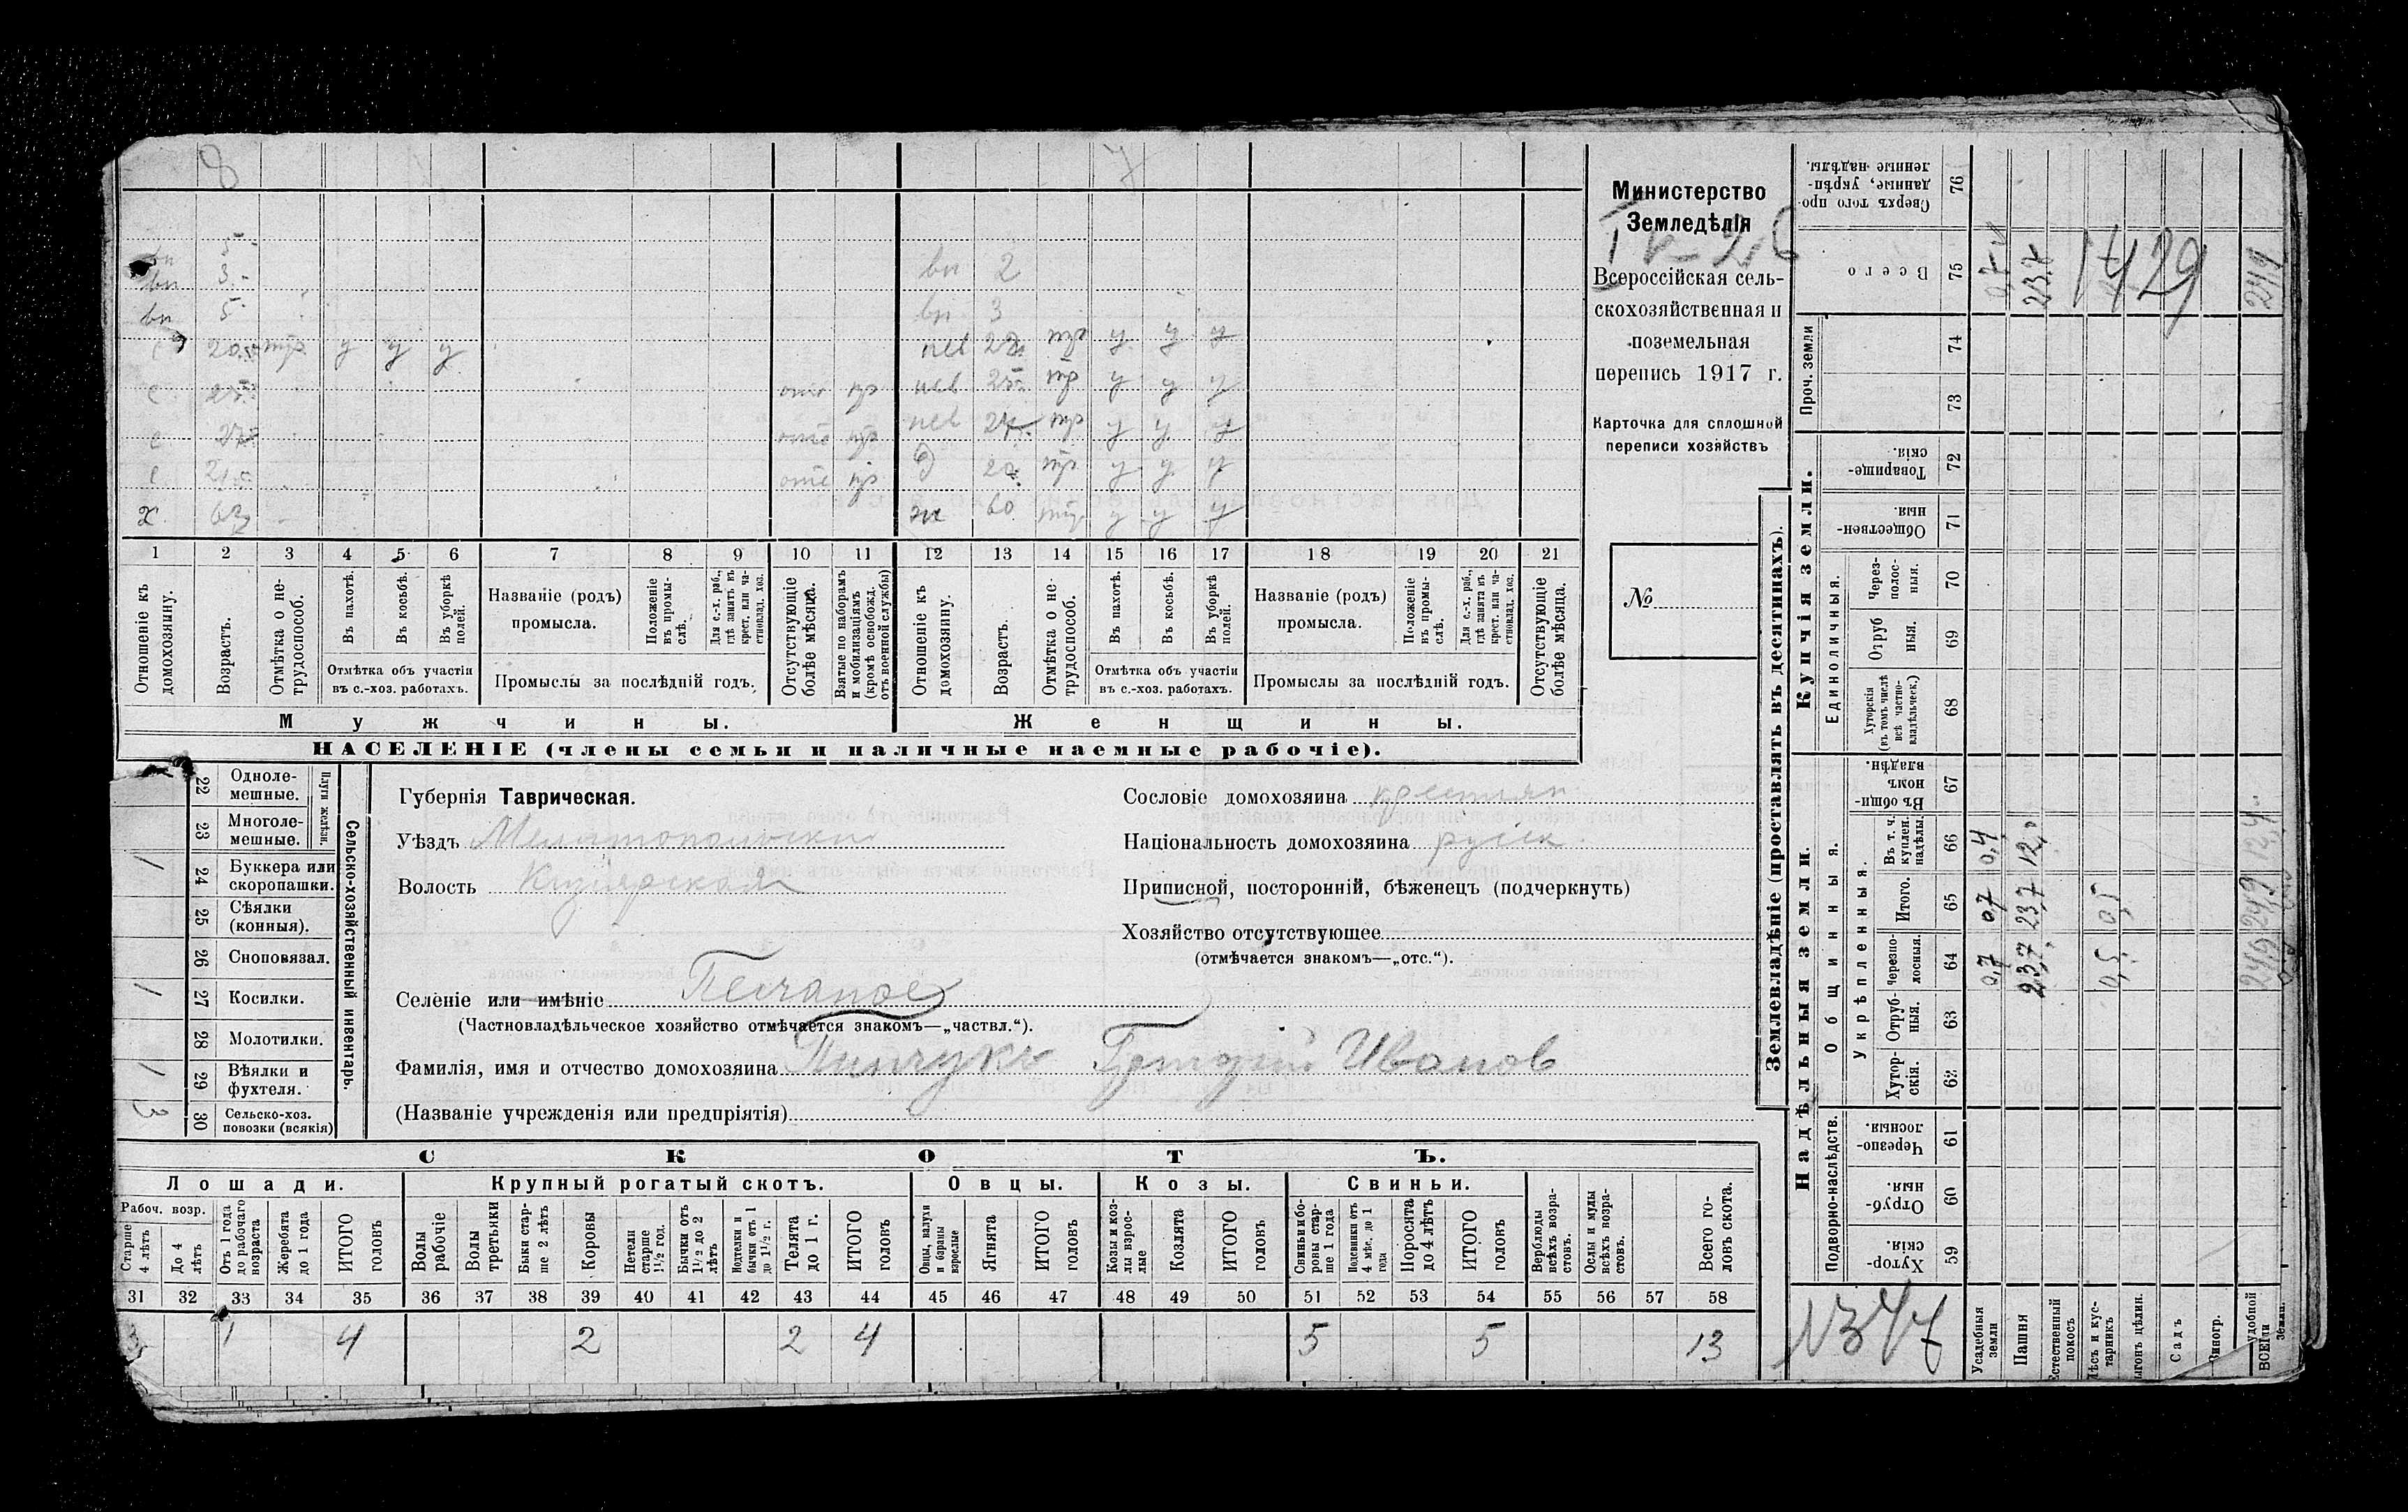 8 7
5
вн 3 вн 2
вн 5 вн 3
с 20 тр у у у нев 22 тр у у у
с 25 отс пр нев 25 тр у у у
с 27 отс пр нев 24 тр у у у
с 21 отс пр д 20 тр у у у
х 63 ж 60 тр у у у
1 2 3 4 5 6 7 8 9 10 11 12 13 14 15 16 17 18 19 20 21
Отношеніе къ домохозяину.
Возрастъ.
Отмѣтка о не-трудоспособ.
Въ пахотѣ.
Въ косьбѣ.
Въ уборкѣ полей.
Отмѣтка объ участіи въ с.-хоз. работахъ.
Названіе (родъ) промысла.
Положеніе въ промы-слѣ.
Для с.-х. раб., гдѣ занятъ въ крест. или ча-стновлад. хоз.
Промыслы за послѣдній годъ.
Отсутствующіе болѣе мѣсяца.
Взятые по наборамъ и мобилизаціямъ (кромѣ освобожд. отъ военной службы)
Отношеніе къ домохозяину.
Возрастъ.
Отмѣтка о не-трудоспособ.
Въ пахотѣ.
Въ косьбѣ.
Въ уборкѣ полей.
Отмѣтка объ участіи въ с.-хоз. работахъ.
Названіе (родъ) промысла.
Положеніе въ промы-слѣ.
Для с.-х. раб., гдѣ занята въ крест. или ча-стновлад. хоз.
Промыслы за послѣдній годъ.
Отсутствующіе болѣе мѣсяца.
Мужчины. Женщины.
НАСЕЛЕНІЕ (члены семьи и наличные наемные рабочіе).
Министерство
Земледѣлія
Всероссійская сель-
скохозяйственная и
поземельная
перепись 1917 г.
Карточка для сплошной
переписи хозяйствъ
№
22 Одноле-мешные.
23 Многоле-мешные.
Плуги желѣзн.
1 24 Буккера или скоропашки.
25 Сѣялки (конныя).
26 Сноповязал.
1 27 Косилки.
28 Молотилки.
1 29 Вѣялки и фухтеля.
3 30 Сельско-хоз. повозки (всякія)
Сельско-хозяйственный инвентарь.
Губернія Таврическая.
Уѣздъ Мелитопольски
Волость
Сословіе домохозяина крестьян
Національность домохозяина руск.
Приписной, посторонній, бѣженецъ (подчеркнуть)
Хозяйство отсутствующее
(отмѣчается знакомъ—„отс.“).
Селеніе или имѣніе Песчаное
(Частновладѣльческое хозяйство отмѣчается знакомъ—„частвл.“).
Фамилія, имя и отчество домохозяина Пинчукъ Григорій Иванов
(Названіе учрежденія или предпріятія)
СКОТЪ.
Лошади. Крупный рогатый скотъ. Овцы. Козы. Свиньи.
Рабоч. возр.
Старше 4 лѣтъ
До 4 лѣтъ
Отъ 1 года до рабочаго возраста
Жеребята до 1 года
ИТОГО головъ
Волы рабочіе
Волы третьяки
Быки стар-ше 2 лѣтъ
Коровы
Нетели старше 1½ год.
Бычки отъ 1½ до 2 лѣтъ
Подтелки и бычки отъ 1 до 1½ г.
Телята до 1 г.
ИТОГО головъ
Овцы, валухи и бараны взрослые
Ягнята
ИТОГО головъ
Козы и коз-лы взрос-лые
Козлята
ИТОГО головъ
Свиньи бо-ровы стар-ше 1 года
Подсвинки отъ 4 мѣс. до 1 года
Поросята до 4 лѣтъ
ИТОГО головъ
Верблюды всѣхъ возра-стовъ.
Ослы и мулы всѣхъ возра-стовъ.
Всего го-ловъ скота.
31 32 33 34 35 36 37 38 39 40 41 42 43 44 45 46 47 48 49 50 51 52 53 54 55 56 57 58
3 1 4 2 2 4 5 5 13
Землевладѣніе (проставлять въ десятинахъ).
Сверхъ того про-данные, укрѣп-ленные надѣлы. 76
Всего 75
0,7 23,7 24,9
1429
Проч. земли 74 73
Купчія земли.
Товарище-скія. 72
Обществен-ныя. 71
Единоличныя.
Через-полос-ныя. 70
Отруб ныя. 69
Хуторскія (въ томъ числѣ всѣ частно-владѣльческ.) 68
Надѣльныя земли.
Общинныя.
Въ общи-номъ владѣн. 67
Укрѣпленныя.
Въ т. ч. куплен. надѣлы. 66 0,4 12,0 12,4
Итого. 65 0,7 23,7 0,5 24,9
Черезпо-лосныя. 64 0,7 23,7 0,5 24,9
Отруб-ныя. 63
Хутор-скія. 62
Подворно-наслѣдств.
Черезпо-лосныя. 61
Отруб-ныя. 60
Хутор-скія. 59
№347
Усадебныя земли
Пашня
Естественный покосъ
Лѣсъ и кус-тарникъ
ыгонъ цѣлин.
Садъ
Виногр.
ВСЕГО удобной земли